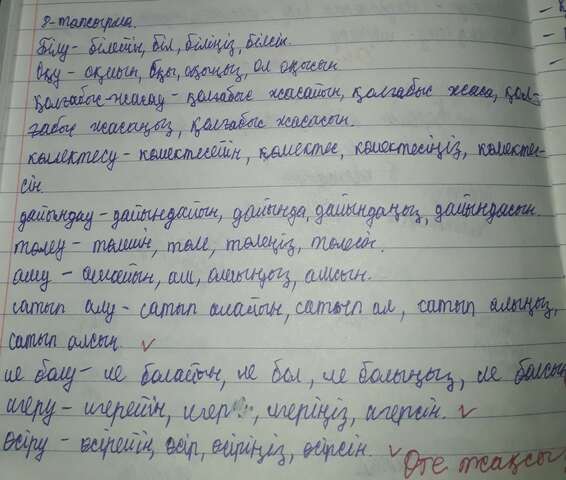 8-тапсырма.
Білу - білейін, біл, біліңіз, білсін.
Оқу - оқиын, оқы, оқыңыз, ол оқысын.
Қолғабыс-жасау - қолғабыс жасайын, қолғабыс жаса, қол-
ғабыс жасаңыз, қолғабыс жасасын.
көмектесу - көмектесейін, көмектес, көмектесіңіз, көмектес-
сін.
дайындау - дайындайын, дайында, дайындаңыз, дайындасын.
төлеу - төлейін, төле, төлеңіз, төлесін.
алу - алайын, ал, алыңыз, алсын.
сатып алу - сатып алайын, сатып ал, сатып алыңыз,
сатып алсын
ие болу - ие болайын, ие бол, ие болыңыз, ие болсын
игеру - игерейін, игер, игеріңіз, игерсін.
өсіру - өсірейін, өсір, өсіріңіз, өсірсін.
Өте жақсы